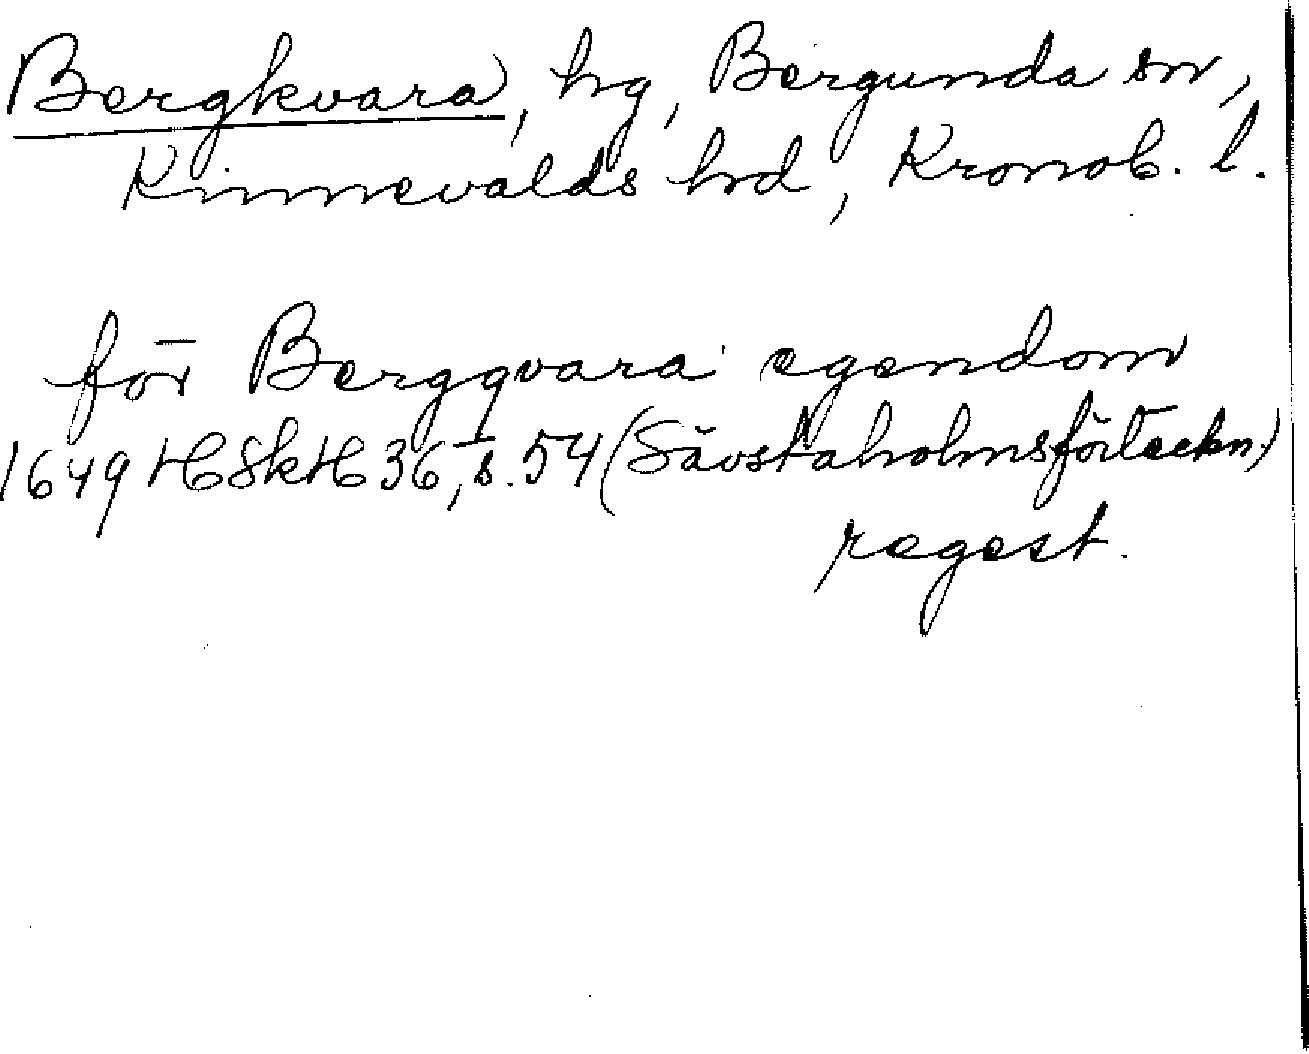 Bergkvara, hg, Bergunda sn,
Kinnevalds hd, Kronob. l.
för Bergqvara egendom
1649 HSkH 36, s. 54 (Sävstaholmsförteckn.)
regest.